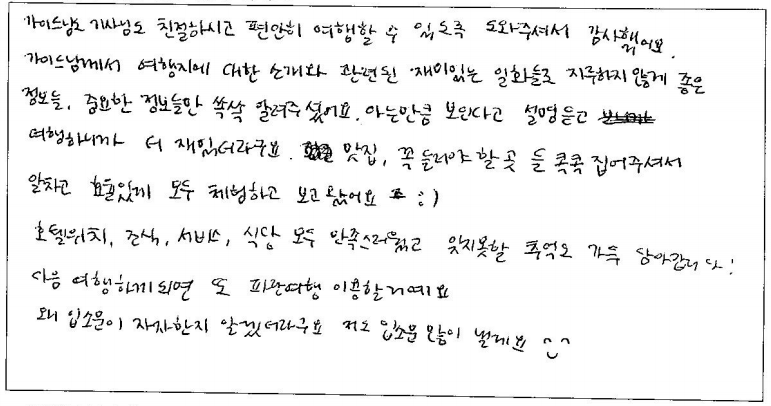 가이드님도 기사님도 친절하시고 편안히 여행할 수 있도록 도와주셔서 감사했어요.
가이드님께서 여행지에 대한 소개와 관련된 재미있는 일화들로 지루하지 않게 좋은
정보들, 중요한 정보들만 쏙쏙 알려주셨어요. 아는만큼 보인다고 설명듣고
여행하니까 더 재밌더라구요. 맛집, 꼭 들러야 할 곳 들 콕콕 집어주셔서
알차고 효율있게 모두 체험하고 보고 왔어요 :)
호텔위치, 조식, 서비스, 식당 모두 만족스러웠고 잊지못할 추억도 가득 담아갑니다!
다음 여행하게되면 또 파란여행 이용할거예요
왜 입소문이 자자한지 알겠더라구요 저도 입소문 많이 낼게요